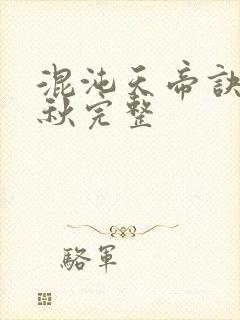 混沌天帝訣
秋完整
駱軍